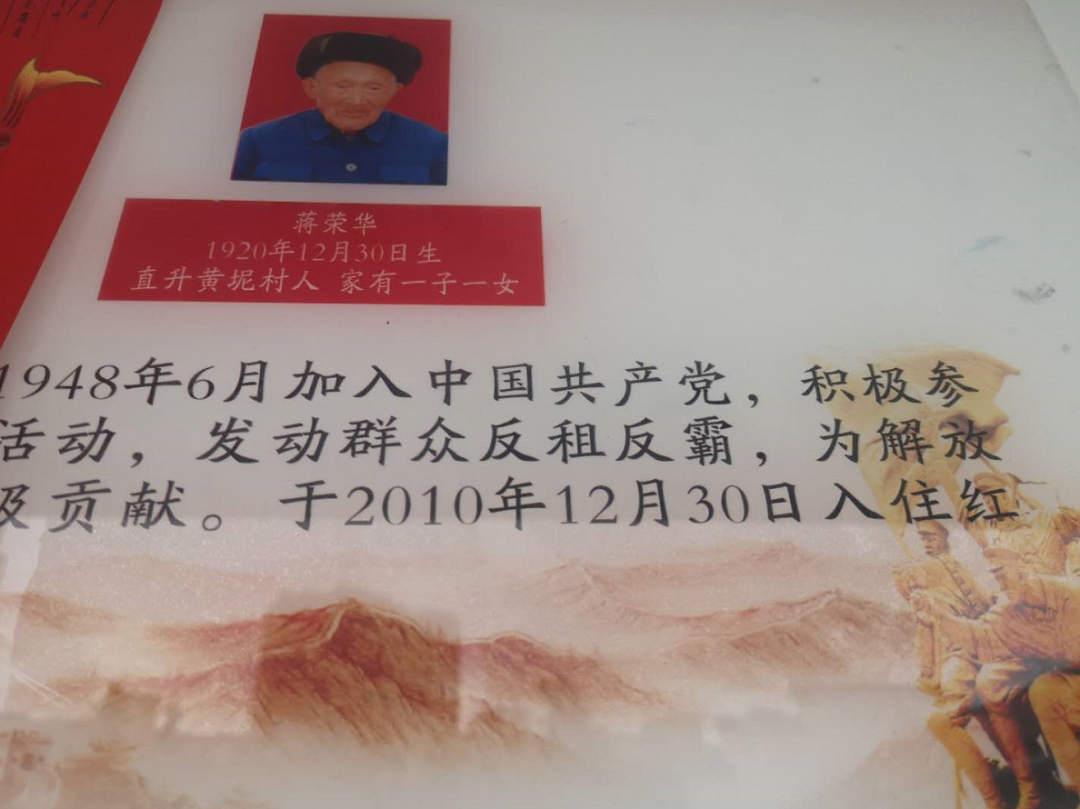 蒋荣华
1920年12月30日生
直升黄坭村人 家有一子一女
1948年6月加入中国共产党，积极参
活动，发动群众反租反霸，为解放
极贡献。于2010年12月30日入住红